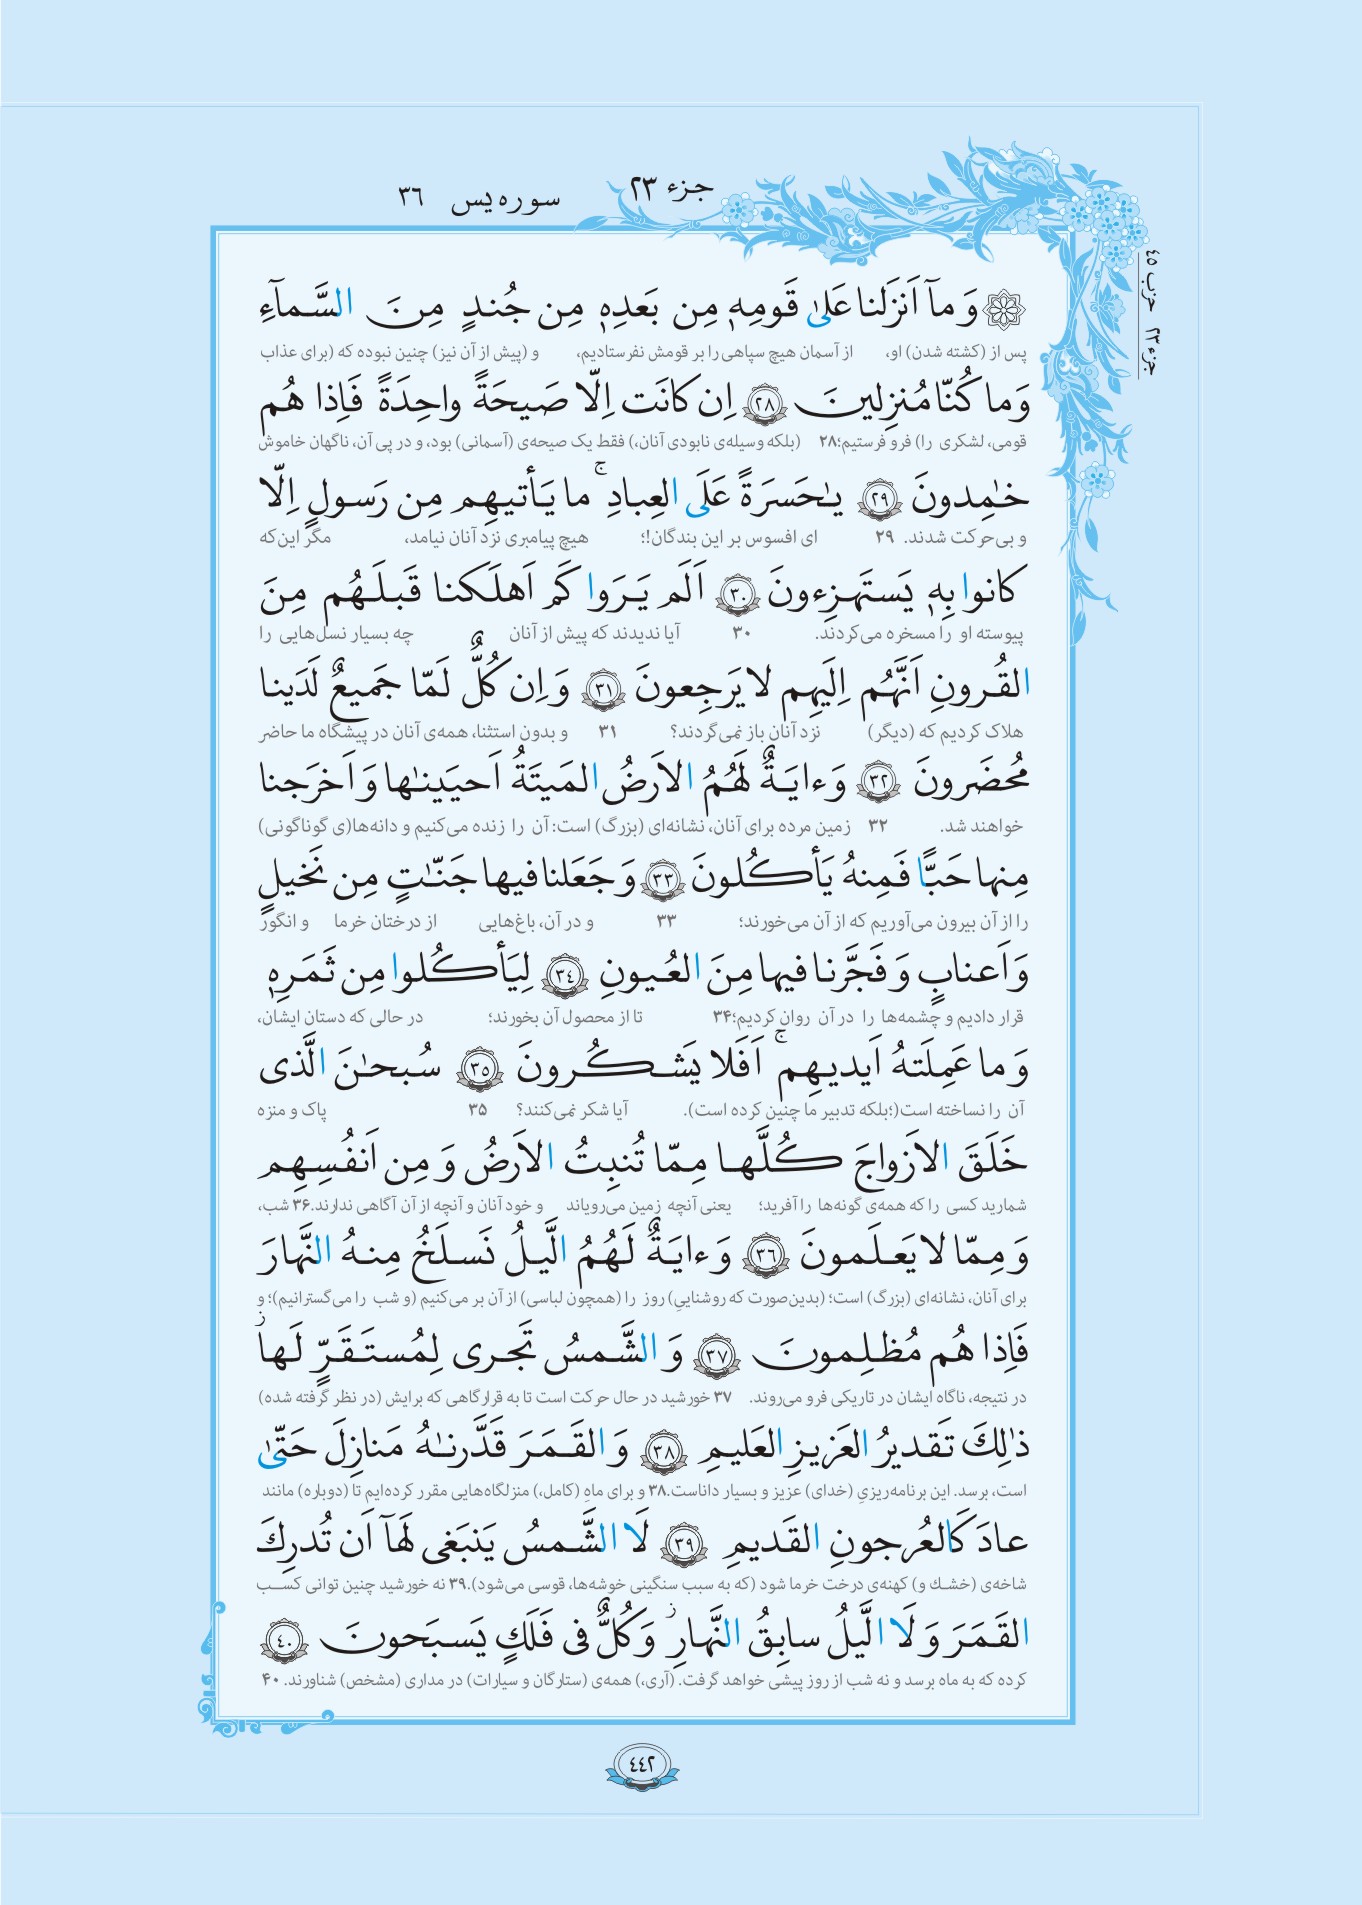 جزء ٢٣
سوره یس ٣٦
حزب ٤٥ جزء ٢٣
وَ مآ اَنزَلنا عَلىٰ قَومِهٖ مِن بَعدِهٖ مِن جُندٍ مِنَ السَّمآءِ
پس از (کشته شدن) او، از آسمان هیچ سپاهی را بر قومش نفرستادیم، و (پیش از آن نیز) چنین نبوده که (برای عذاب
وَما كُنّا مُنزِلينَ ٢٨ اِن كانَت اِلّا صَيحَةً واحِدَةً فَاِذا هُم
قومی، لشکری را) فرو فرستیم؛۲۸ (بلکه وسیله‌ی نابودی آنان،) فقط یک صیحه‌ی (آسمانی) بود، و در پی آن، ناگهان خاموش
خٰمِدونَ ٢٩ يٰحَسرَةً عَلَى العِبادِ ۚ ما يَأتيهِم مِن رَسولٍ اِلّا
و بی‌حرکت شدند. ۲۹ ای افسوس بر این بندگان!؛ هیچ پیامبری نزد آنان نیامد، مگر این‌که
كانوا بِهٖ يَستَهزِءونَ ٣٠ اَلَم يَرَوا كَم اَهلَكنا قَبلَهُم مِنَ
پیوسته او را مسخره می‌کردند. ۳۰ آیا ندیدند که پیش از آنان چه بسیار نسل‌هایی را
القُرونِ اَنَّهُم اِلَيهِم لا يَرجِعونَ ٣١ وَ اِن كُلٌّ لَمّا جَميعٌ لَدَينا
هلاک کردیم که (دیگر) نزد آنان باز نمی‌گردند؟ ۳۱ و بدون استثنا، همه‌ی آنان در پیشگاه ما حاضر
مُحضَرونَ ٣٢ وَ ءايَةٌ لَهُمُ الاَرضُ المَيتَةُ اَحيَينٰها وَ اَخرَجنا
خواهند شد. ۳۲ زمین مرده برای آنان، نشانه‌ای (بزرگ) است: آن را زنده می‌کنیم و دانه‌ها(ی گوناگونی)
مِنها حَبًّا فَمِنهُ يَأكُلونَ ٣٣ وَ جَعَلنا فيها جَنّٰتٍ مِن نَخيلٍ
را از آن بیرون می‌آوریم که از آن می‌خورند؛ ۳۳ و در آن، باغ‌هایی از درختان خرما و انگور
وَ اَعنابٍ وَ فَجَّرنا فيها مِنَ العُيونِ ٣٤ لِيَأكُلوا مِن ثَمَرِهٖ
قرار دادیم و چشمه‌ها را در آن روان کردیم؛۳۴ تا از محصول آن بخورند؛ در حالی که دستان ایشان،
وَ ما عَمِلَتهُ اَيديهِم ۚ اَفَلا يَشكُرونَ ٣٥ سُبحٰنَ الَّذى
آن را نساخته است(؛بلکه تدبیر ما چنین کرده است). آیا شکر نمی‌کنند؟ ۳۵ پاک و منزه
خَلَقَ الاَزواجَ كُلَّها مِمّا تُنبِتُ الاَرضُ وَ مِن اَنفُسِهِم
شمارید کسی را که همه‌ی گونه‌ها را آفرید؛ یعنی آنچه زمین می‌رویاند و خود آنان و آنچه از آن آگاهی ندارند.۳۶ شب،
وَ مِمّا لا يَعلَمونَ ٣٦ وَ ءايَةٌ لَهُمُ الَّيلُ نَسلَخُ مِنهُ النَّهارَ
برای آنان، نشانه‌ای (بزرگ) است؛ (بدین‌صورت که روشناییِ) روز را (همچون لباسی) از آن بر می‌کنیم (و شب را می‌گسترانیم)؛ و
فَاِذا هُم مُظلِمونَ ٣٧ وَ الشَّمسُ تَجرى لِمُستَقَرٍّ لَها ز
در نتیجه، ناگاه ایشان در تاریکی فرو می‌روند. ۳۷ خورشید در حال حرکت است تا به قرارگاهی که برایش (در نظر گرفته شده)
ذٰلِكَ تَقديرُ العَزيزِ العَليمِ ٣٨ وَ القَمَرَ قَدَّرنٰهُ مَنازِلَ حَتّىٰ
است، برسد. این برنامه‌ریزیِ (خدای) عزیز و بسیار داناست.۳۸ و برای ماهِ (کامل،) منزلگاه‌هایی مقرر کرده‌ایم تا (دوباره) مانند
عادَ كَالعُرجونِ القَديمِ ٣٩ لَا الشَّمسُ يَنبَغى لَهآ اَن تُدرِكَ
شاخه‌ی (خشك و) کهنه‌ی درخت خرما شود (که به سبب سنگینی خوشه‌ها، قوسی می‌شود).۳۹ نه خورشید چنین توانی کسب
القَمَرَ وَ لَا الَّيلُ سابِقُ النَّهارِ ز وَ كُلٌّ فى فَلَكٍ يَسبَحونَ ٤٠
کرده که به ماه برسد و نه شب از روز پیشی خواهد گرفت. (آری،) همه‌ی (ستارگان و سیارات) در مداری (مشخص) شناورند. ۴۰
٤٤٢